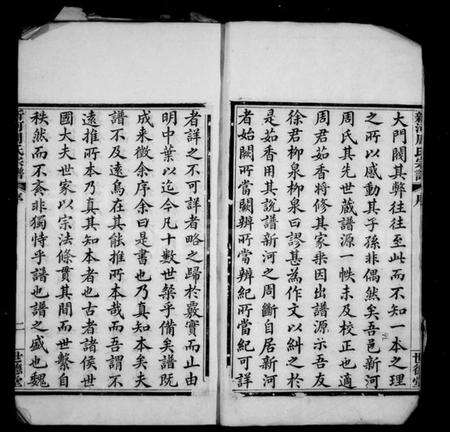 大門閥其弊往往至此而不知一本之理
之所以感動其子孫非偶然矣吾邑新河
周氏其先世蔵譜源一帙未及校正也適
周君茹香將修其家乘因出譜源示吾友
徐君柳泉柳泉曰謬甚為作文以糾之於
是茹香用其說譜新河之周斷自居新河
者始闕所當闕辨所當辨紀所當紀可詳
者詳之不可詳者略之歸於覈實而止由
明中葉以迄今凡十數世粲乎備矣譜既
成来徴余序余曰是書也乃真知本矣夫
譜不及遠烏在其能推所本哉而吾謂不
遠推所本乃真其知本者也古者諸侯世
國大夫世家以宗法條貫其間而世繫自
秩然而不紊非獨恃乎譜也譜之盛也魏
新河周氏宗譜 序
二
世德堂